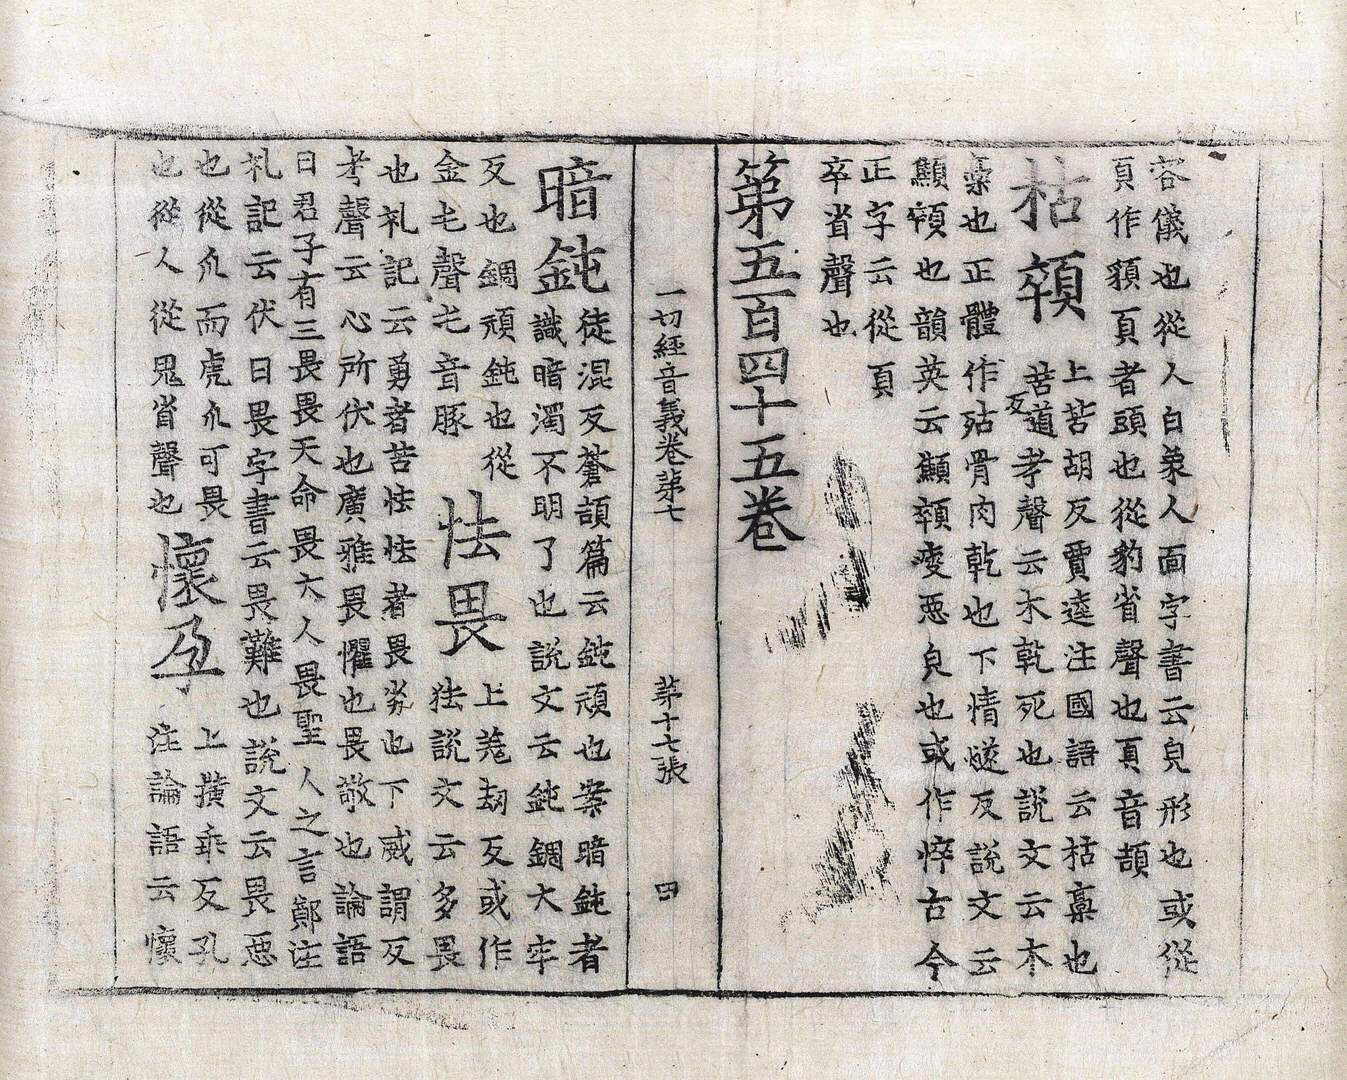 容儀也從人白象人面字書云皃形也或從
頁作䫉頁者頭也從豹省聲也頁音頡
枯顇
上苦胡反賈逵注國語云枯槀也
苦道反考聲云木乾死也說文云木
槀也正體作殆骨肉乾也下情遂反說文云
顦顇也韻英云顦顇瘦惡皃也或作悴古今
正字云從頁
卒省聲也
第五百四十五卷
一切經音義卷第七 第十七張 四
暗鈍
徒混反蒼頡篇云鈍頑也案暗鈍者
識暗濁不明了也說文云鈍錭大牢
反也錭頑鈍也從
金屯聲屯音豚
怯畏
上羌劫反或作
㹤說文云多畏
也礼記云勇者苦怯怯者畏劣也下威謂反
考聲云心所伏也廣雅畏懼也畏敬也論語
曰君子有三畏畏天命畏大人畏聖人之言鄭注
礼記云伏曰畏字書云畏難也說文云畏惡
也從爪而虎爪可畏
也從人從鬼省聲也
懷孕
上擴乖反孔
注論語云懷